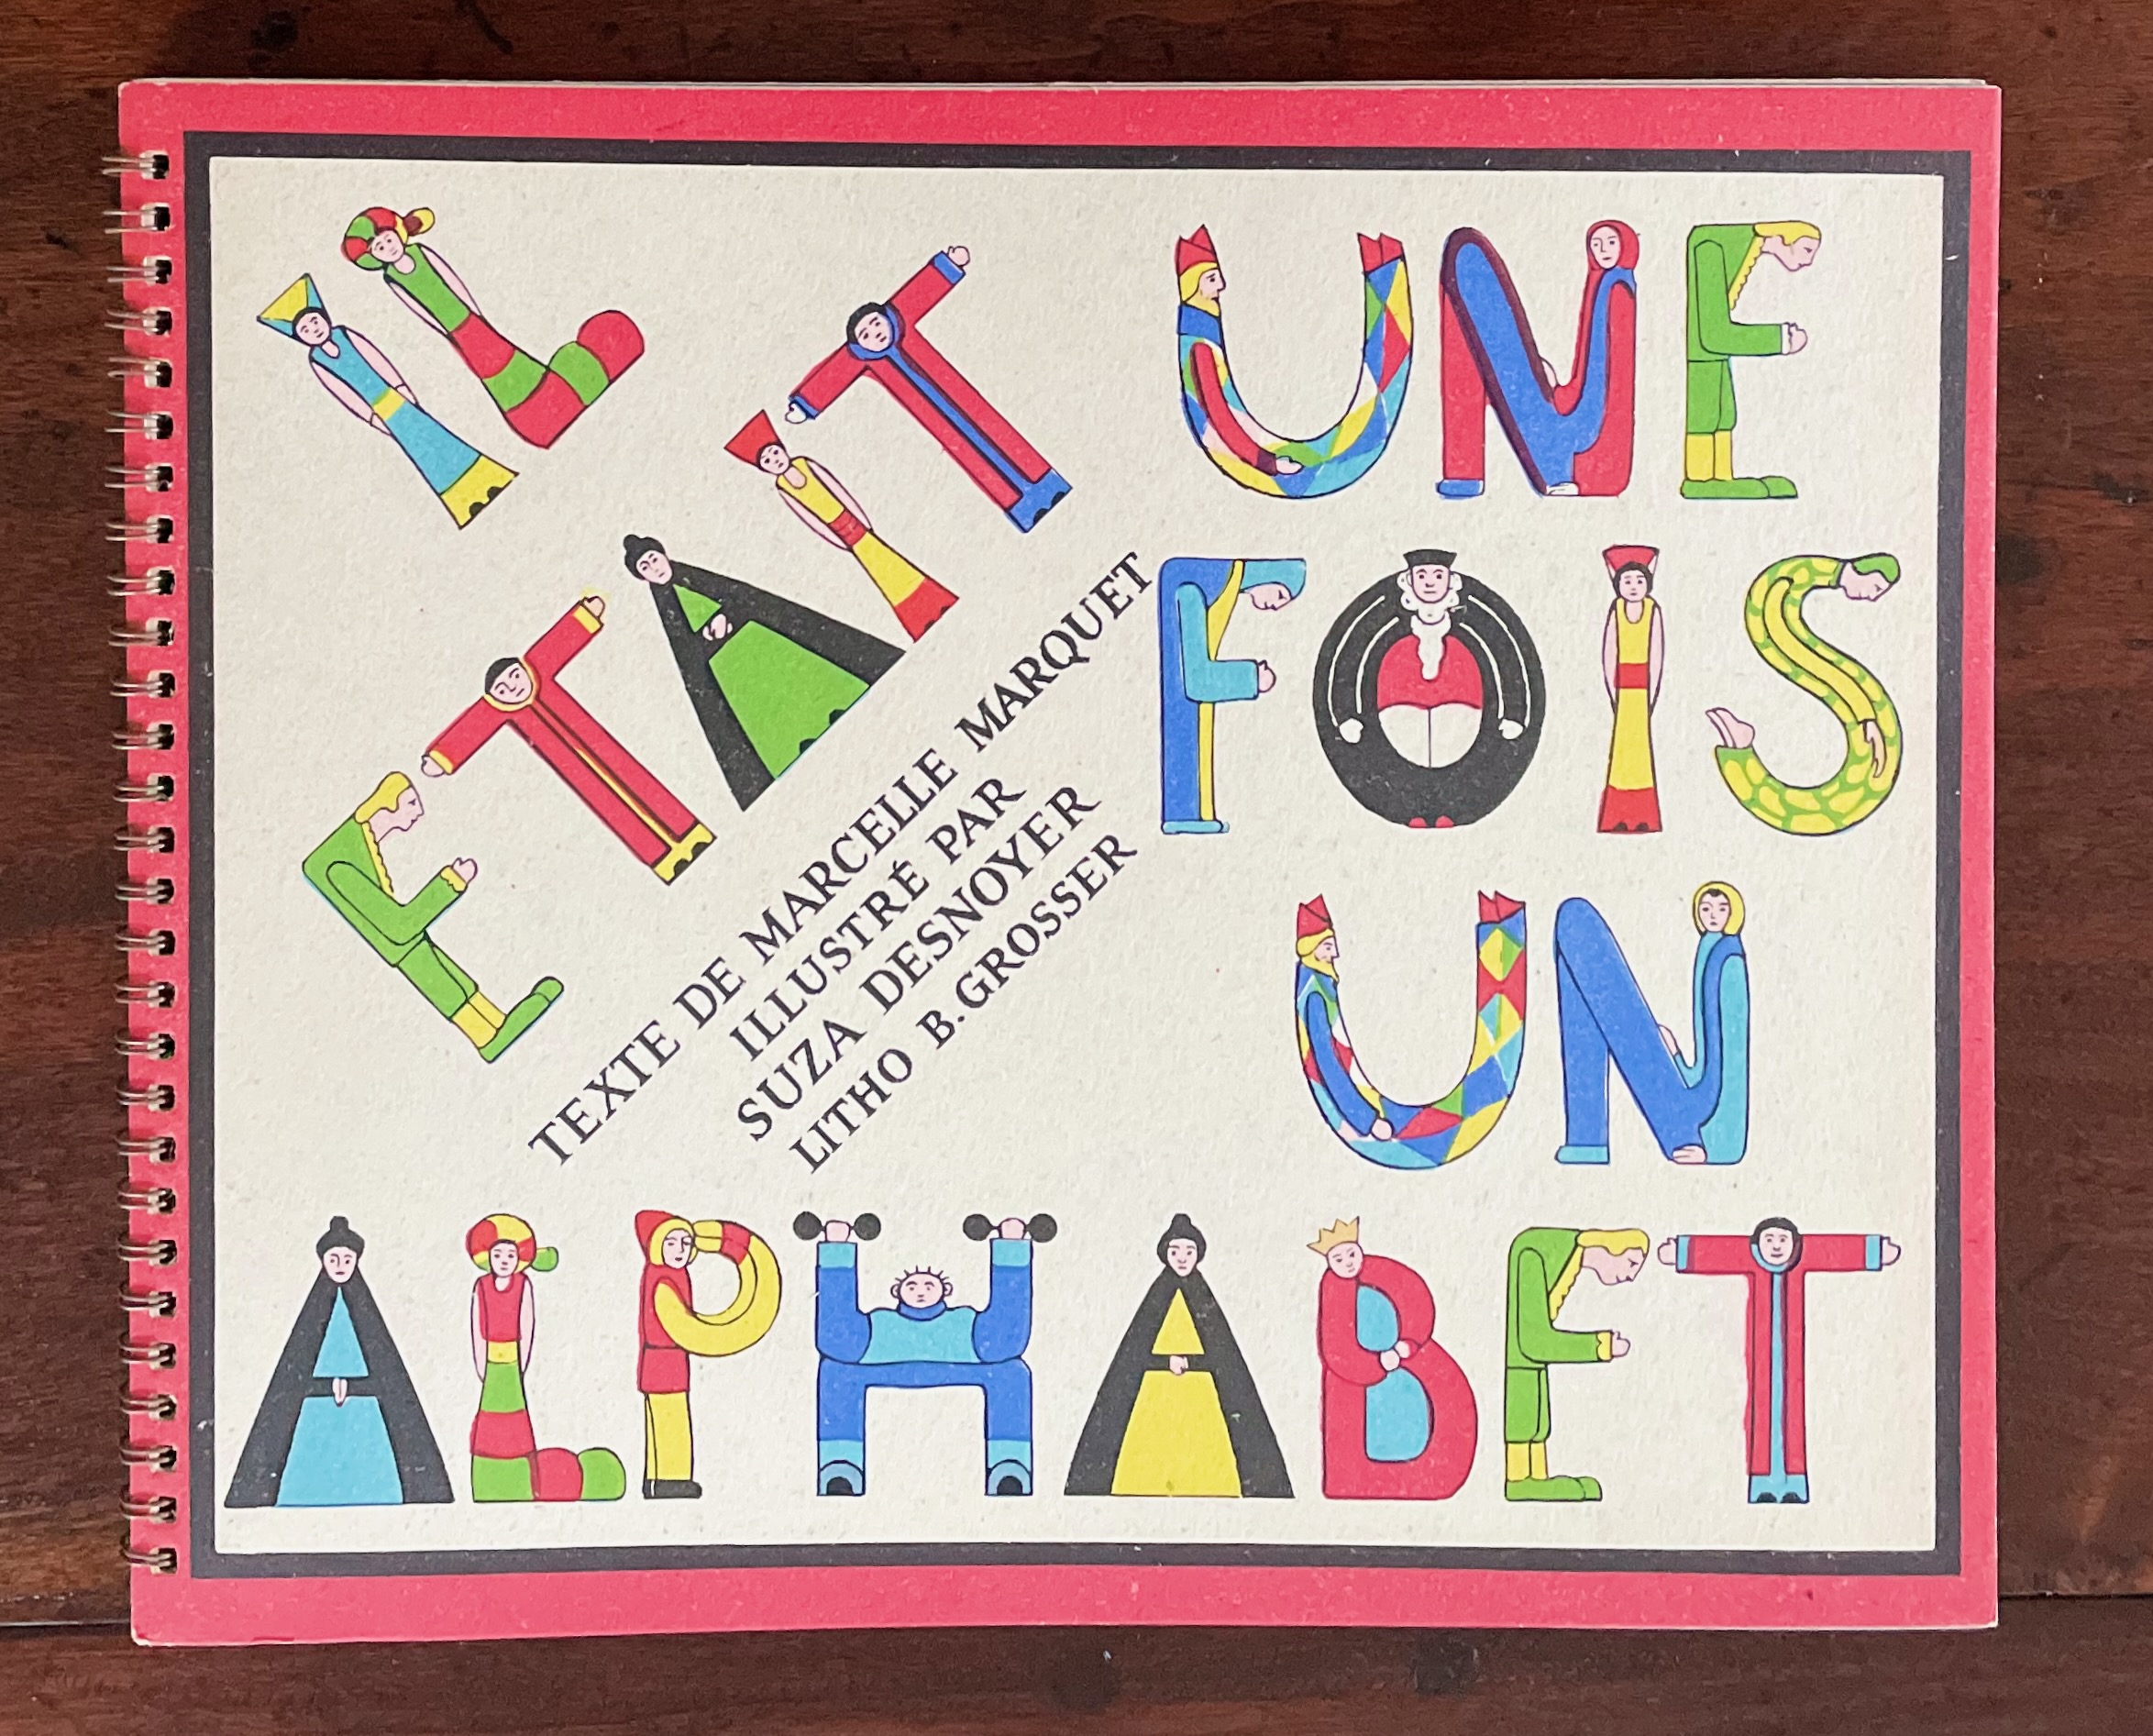 IL
ETAIT
UNE
FOIS
UN
ALPHABET
TEXTE DE MARCELLE MARQUET
ILLUSTRÉ PAR
SUZA DESNOYER
LITHO B. GROSSER